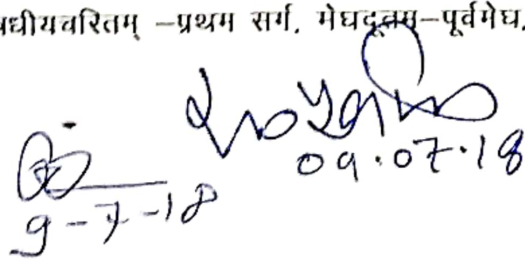 षधीयचरितम् –प्रथम सर्ग, मेघदूतम्–पूर्वमेघ,
09.07.18
9-7-18